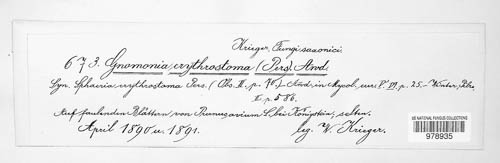 Krieger, Fungi saxonici.
673. Gnomonia erythrostoma (Pers). Awd.
Syn. Sphaeria erythrostoma Pers. (Obs. II., p. 70) - Awd. in Mycol. eur. p. 25. - Winter, Pilze
II. p. 586.
Auf faulenden Blättern von Prunus avium L. bei Königstein, selten.
April 1890 u. 1891.
leg. W. Krieger.
US NATIONAL FUNGUS COLLECTIONS
978935